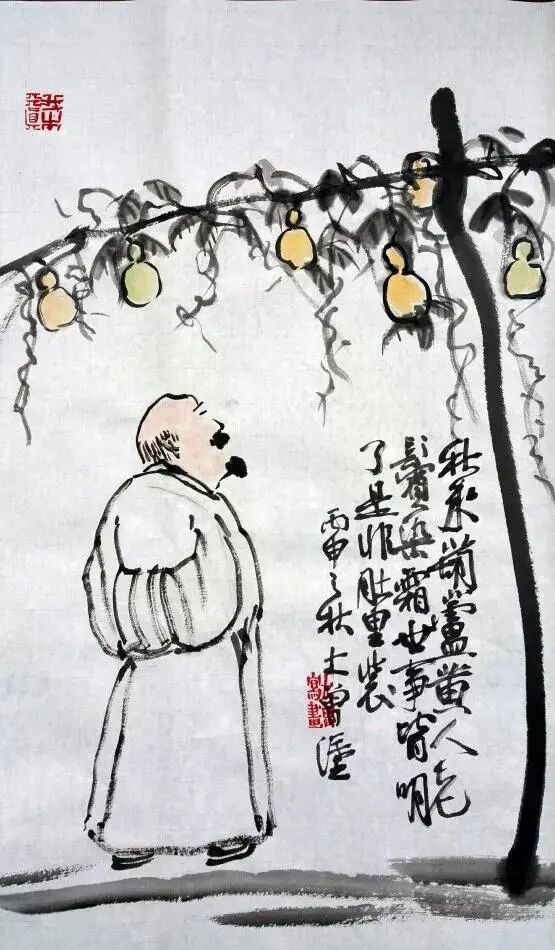 秋来葫蘆黄人老
鬢染霜世事皆明
了是非肚里装
丙申之秋